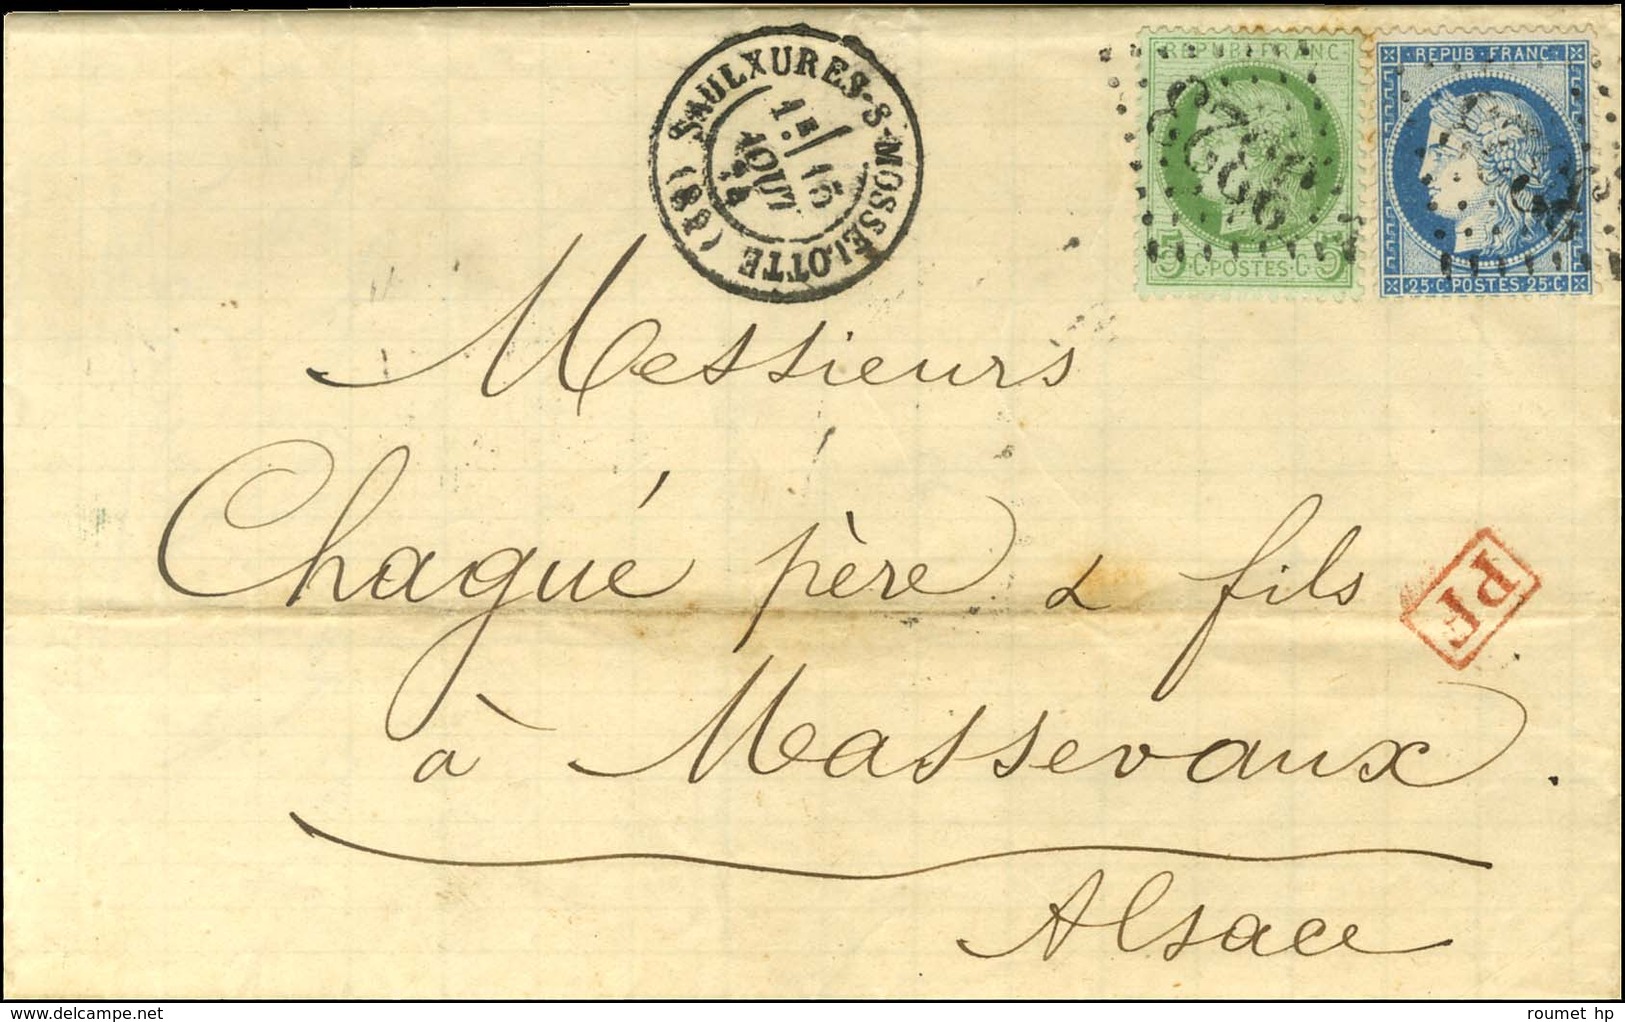 SAULXURES-S-MOSSELOTTE (88)
1E/
16
AOUT
74
REPUB·FRANC
5·C·POSTES·C·5
REPUB·FRANC
25·C·POSTES·25·C
Messieurs
Chagué père & fils
PF
à Massevaux.
Alsace
www.delcampe.net
roumet hp